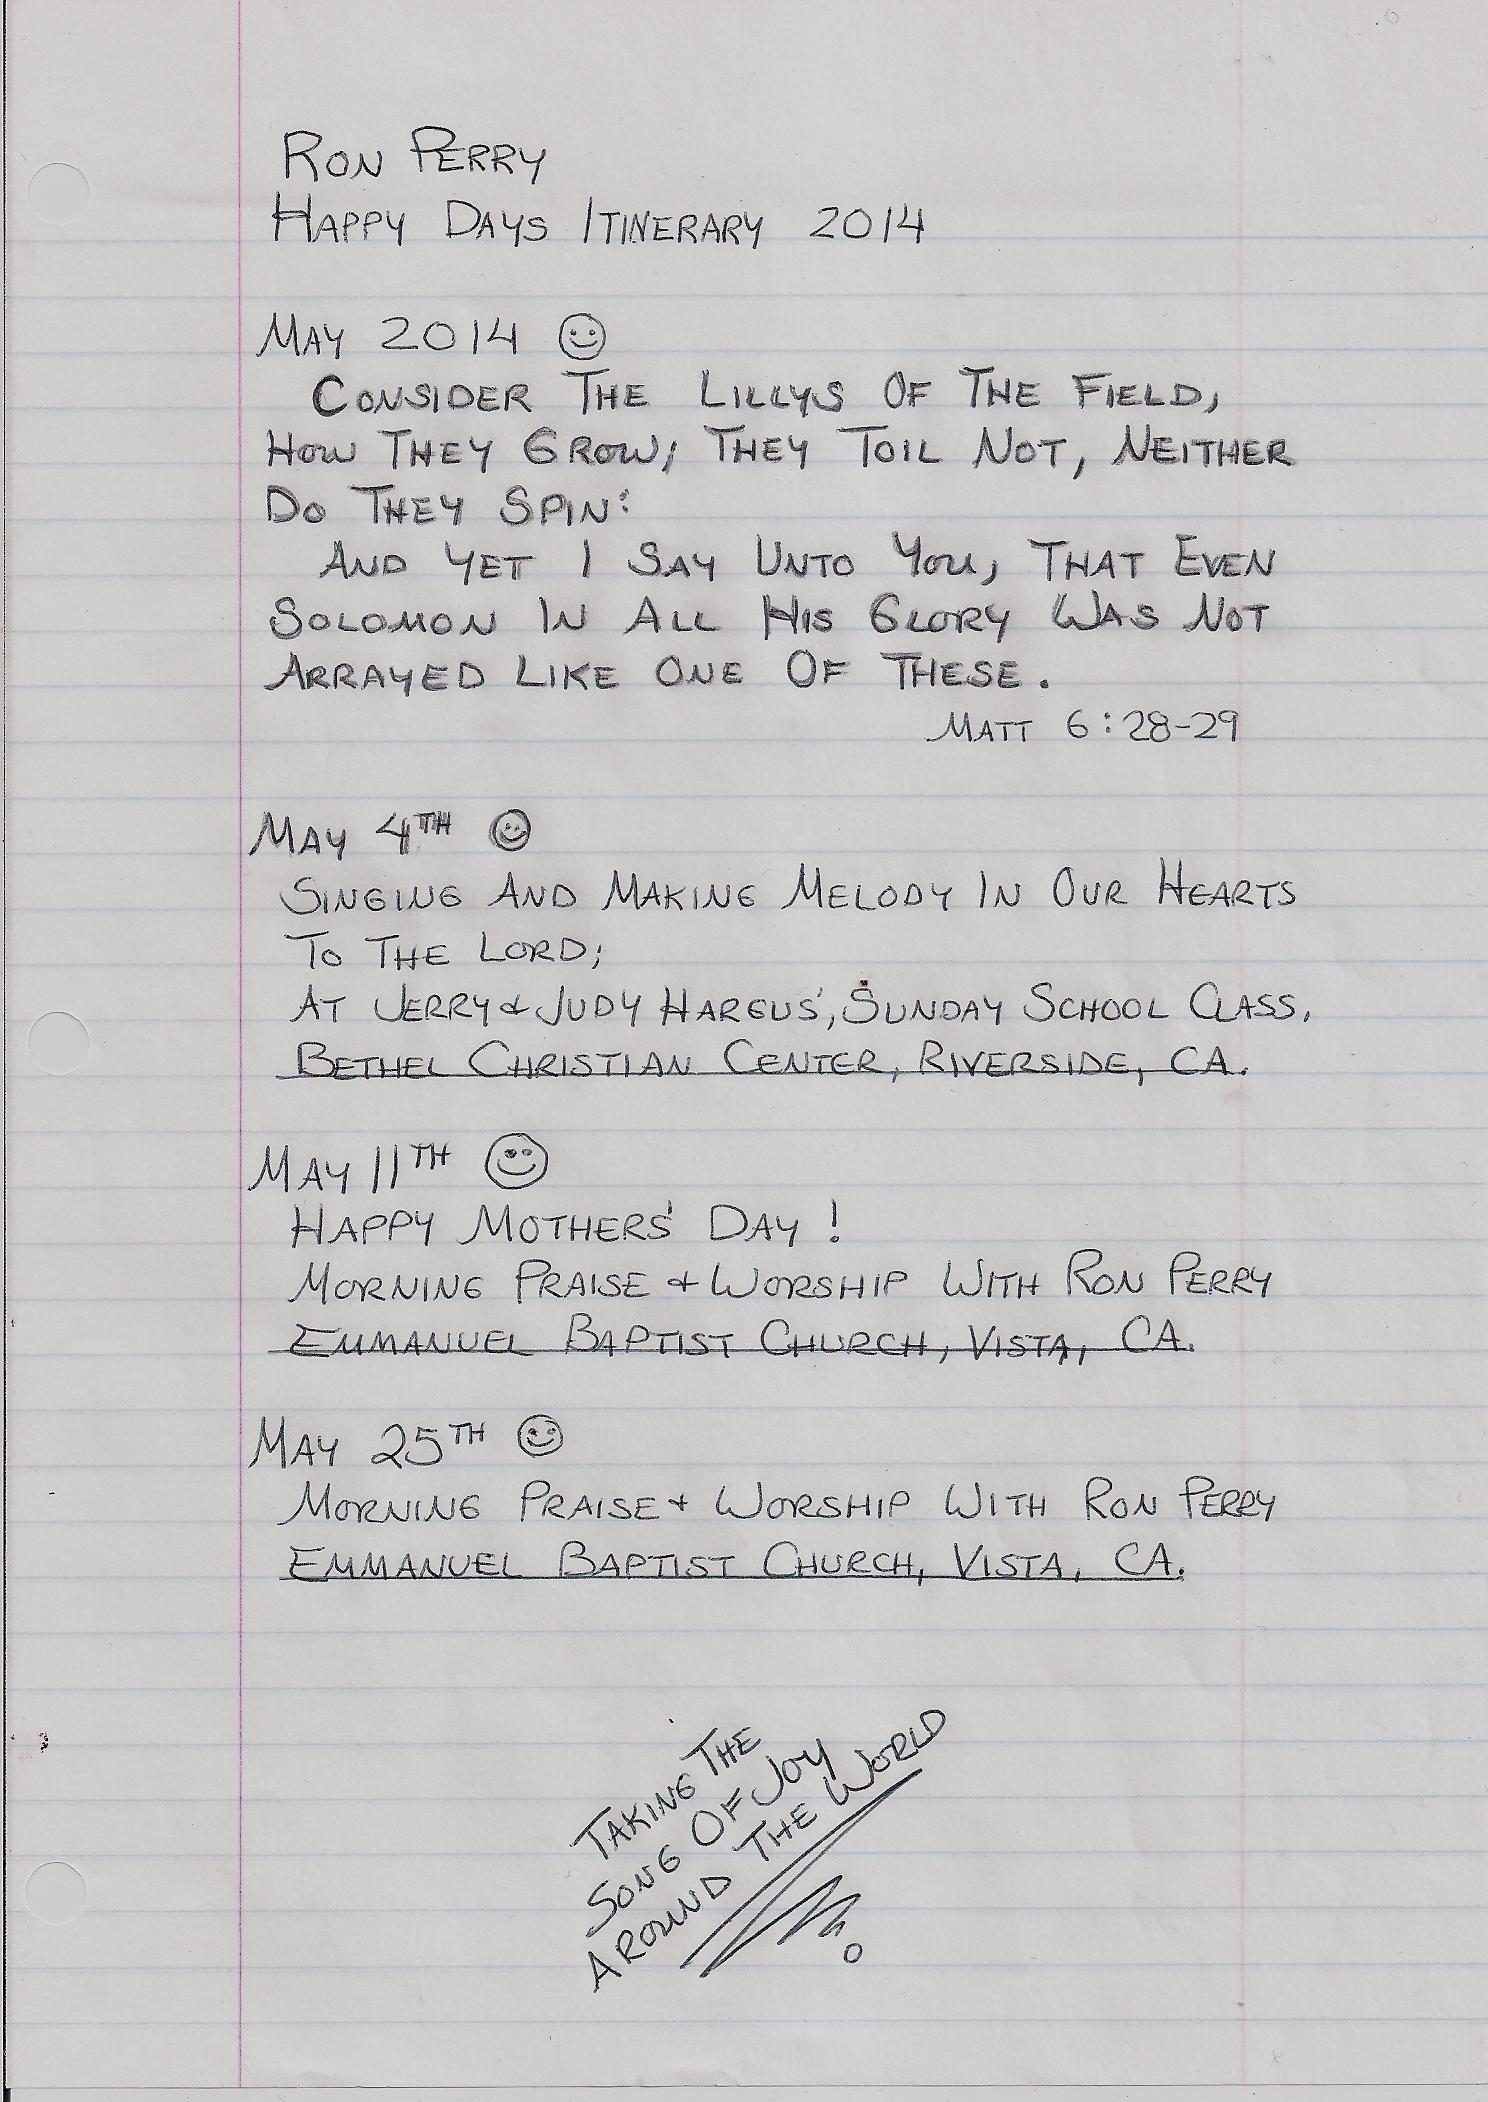 RON PERRY
HAPPY DAYS ITINERARY 2014
MAY 2014 ☺
CONSIDER THE LILLYS OF THE FIELD,
HOW THEY GROW; THEY TOIL NOT, NEITHER
DO THEY SPIN:
AND YET I SAY UNTO YOU, THAT EVEN
SOLOMON IN ALL HIS GLORY WAS NOT
ARRAYED LIKE ONE OF THESE.
MATT 6:28-29
MAY 4TH ☺
SINGING AND MAKING MELODY IN OUR HEARTS
TO THE LORD;
AT JERRY & JUDY HARGUS', SUNDAY SCHOOL CLASS,
BETHEL CHRISTIAN CENTER, RIVERSIDE, CA.
MAY 11TH ☺
HAPPY MOTHERS' DAY!
MORNING PRAISE & WORSHIP WITH RON PERRY
EMMANUEL BAPTIST CHURCH, VISTA, CA.
MAY 25TH ☺
MORNING PRAISE & WORSHIP WITH RON PERRY
EMMANUEL BAPTIST CHURCH, VISTA, CA.
TAKING THE
SONG OF JOY
AROUND THE WORLD